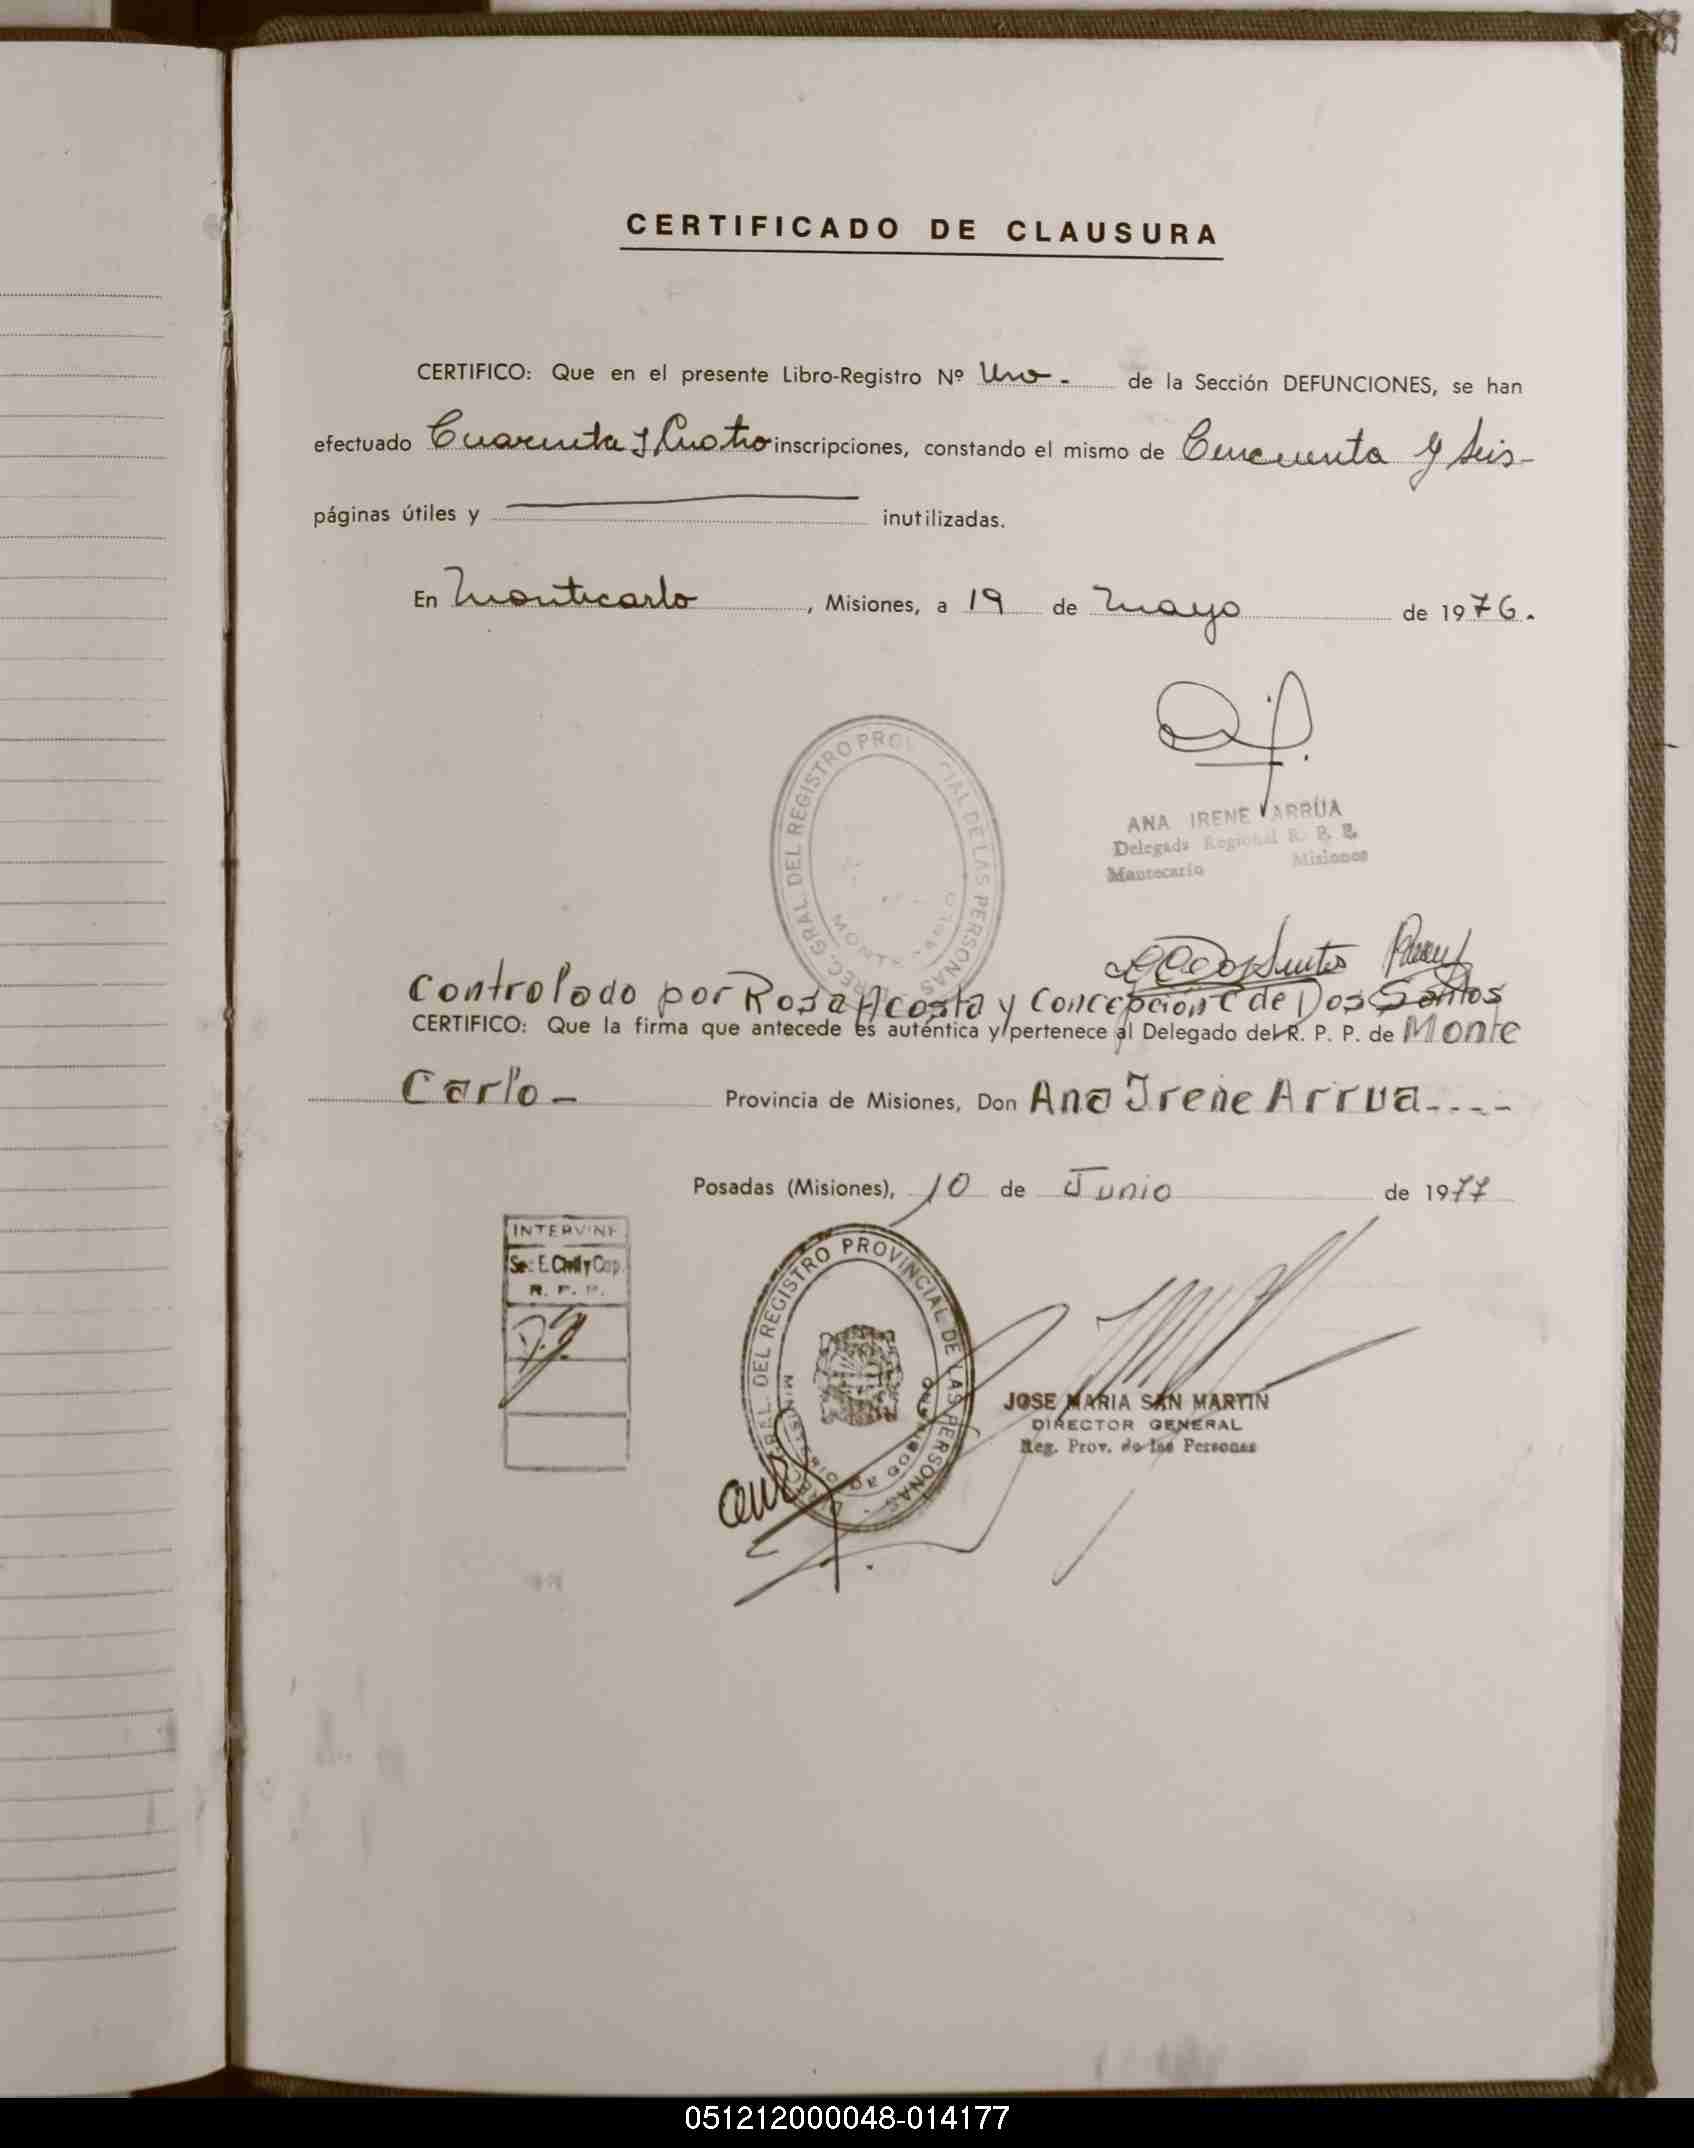 CERTIFICADO DE CLAUSURA
CERTIFICO: Que en el presente Libro-Registro Nº Uno.- de la Sección DEFUNCIONES, se han
efectuado Cuarenta y Cuatro inscripciones, constando el mismo de Cincuenta y Seis-
páginas útiles y inutilizadas.
En Montecarlo, Misiones, a 19 de mayo de 1976.
DIREC. GRAL. DEL REGISTRO PROVINCIAL DE LAS PERSONAS
MONTECARLO
ANA IRENE ARRÚA
Delegada Regional R. P. P.
Montecarlo Misiones
Controlado por Rosa Acosta y Concepción C de Dos Santos
CERTIFICO: Que la firma que antecede es auténtica y pertenece al Delegado del R. P. P. de Monte
Carlo - Provincia de Misiones, Don Ana Irene Arrua----
Posadas (Misiones), 10 de Junio de 1977
INTERVINE
Sec. E. Civil y Cap.
R. P. P.
DIREC. GRAL. DEL REGISTRO PROVINCIAL DE LAS PERSONAS
MINISTERIO DE GOBIERNO
JOSE MARIA SAN MARTIN
DIRECTOR GENERAL
Reg. Prov. de las Personas
051212000048-014177